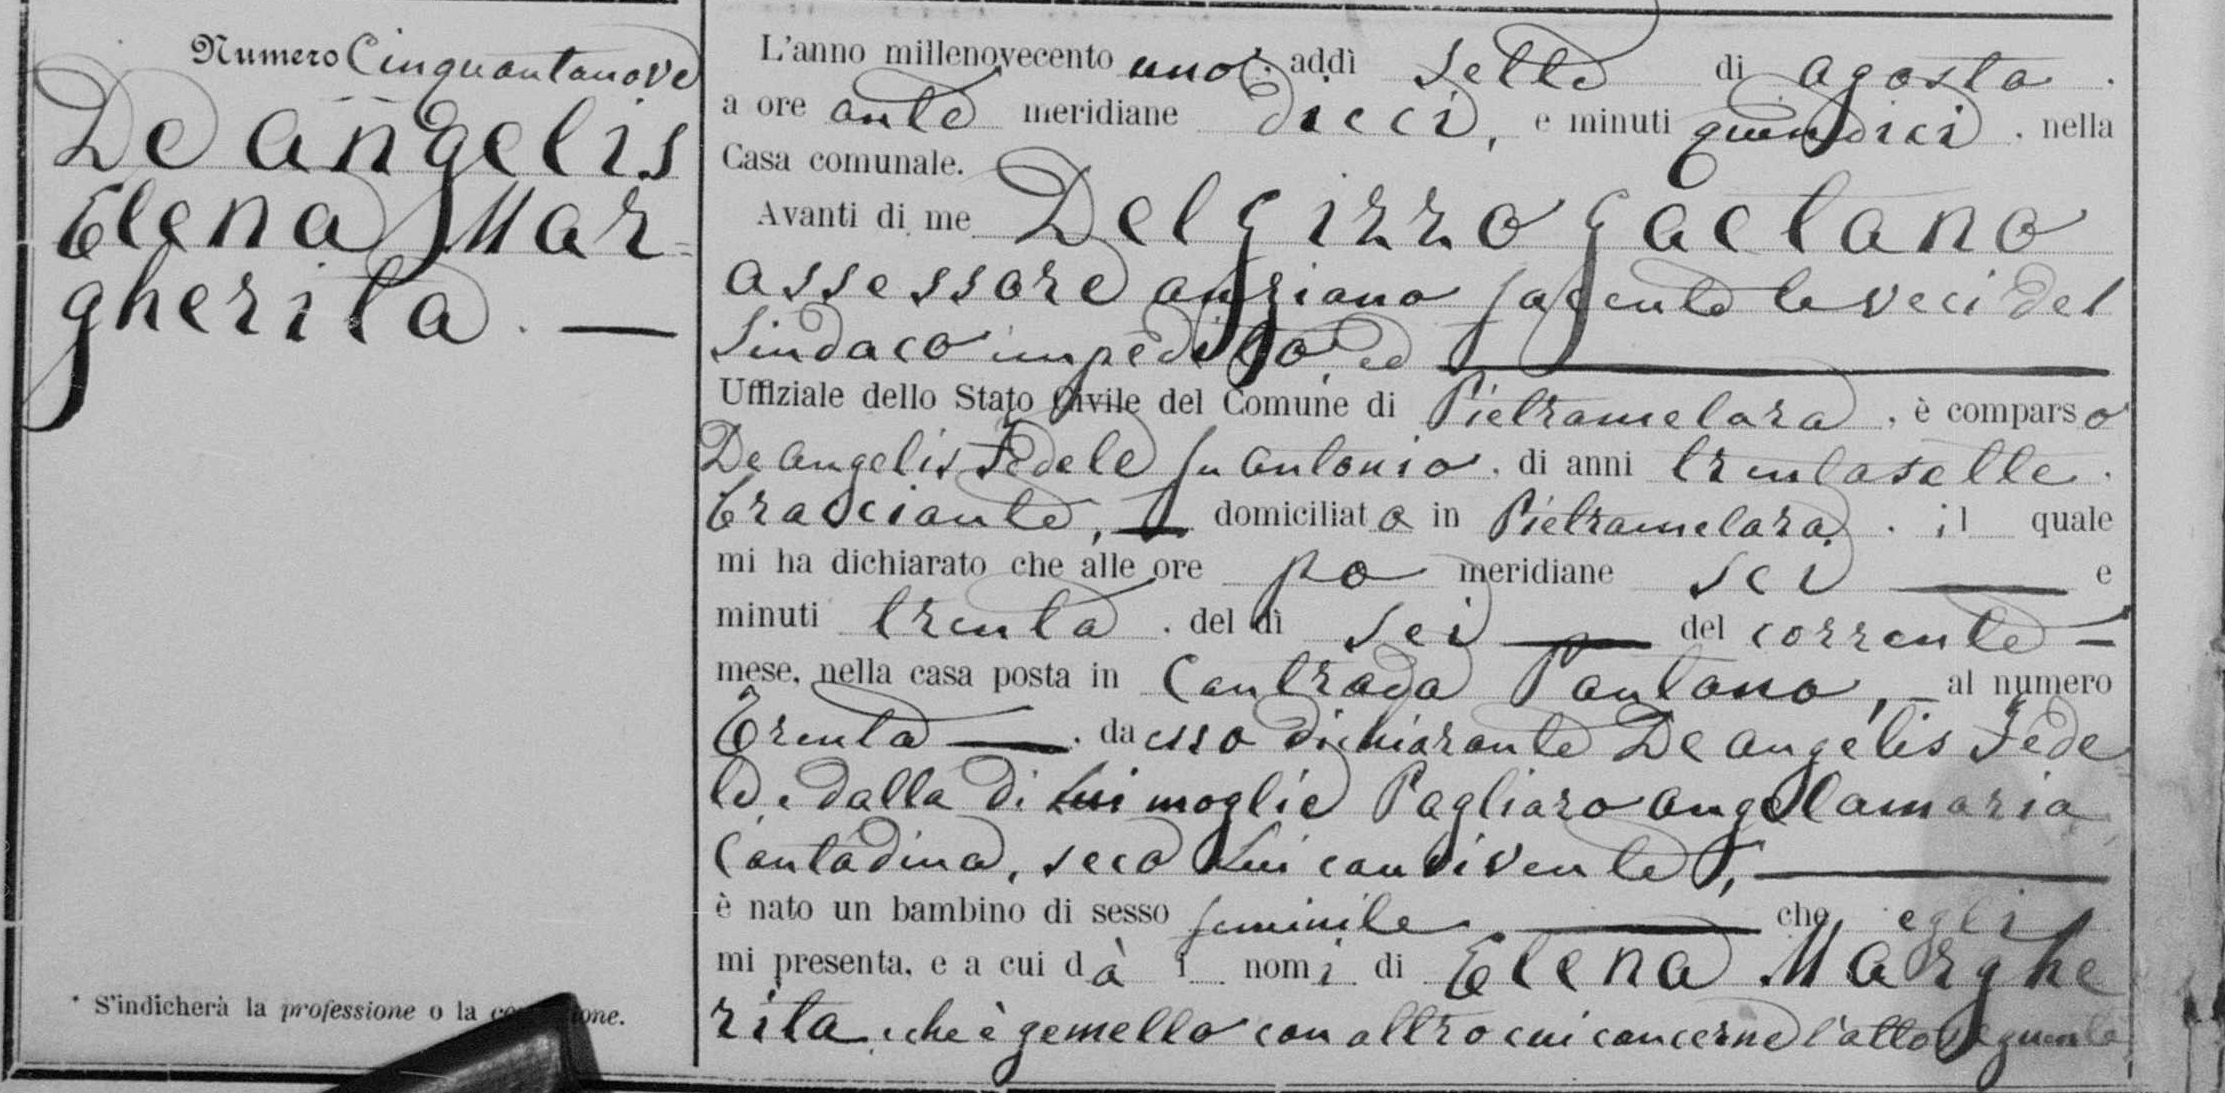 Numero Cinquantanove
De Angelis
Elena Mar=
gherita. —
* S'indicherà la professione o la
L'anno millenovecento uno, addì sette di agosto.
a ore ante meridiane dieci, e minuti quindici, nella
Casa comunale.
Avanti di me Del Gizzo Gaetano
assessore anziano facente le veci del
Sindaco impedito, ed
Uffiziale dello Stato Civile del Comune di Pietramelara, è comparso
De Angelis Fedele fu Antonio, di anni trentasette.
Bracciante, — domiciliato in Pietramelara, il quale
mi ha dichiarato che alle ore po meridiane sei — e
minuti trenta, del dì sei — del corrente —
mese, nella casa posta in Contrada Pantano, — al numero
Trenta —, da esso dichiarante De Angelis Fede
le, e dalla di Lui moglie Pagliaro Angelamaria
Contadina, seco Lui convivente, —
è nato un bambino di sesso feminile — che egli
mi presenta, e a cui dà i nomi di Elena Marghe
rita, che è gemello con altro cui concerne l'atto seguente